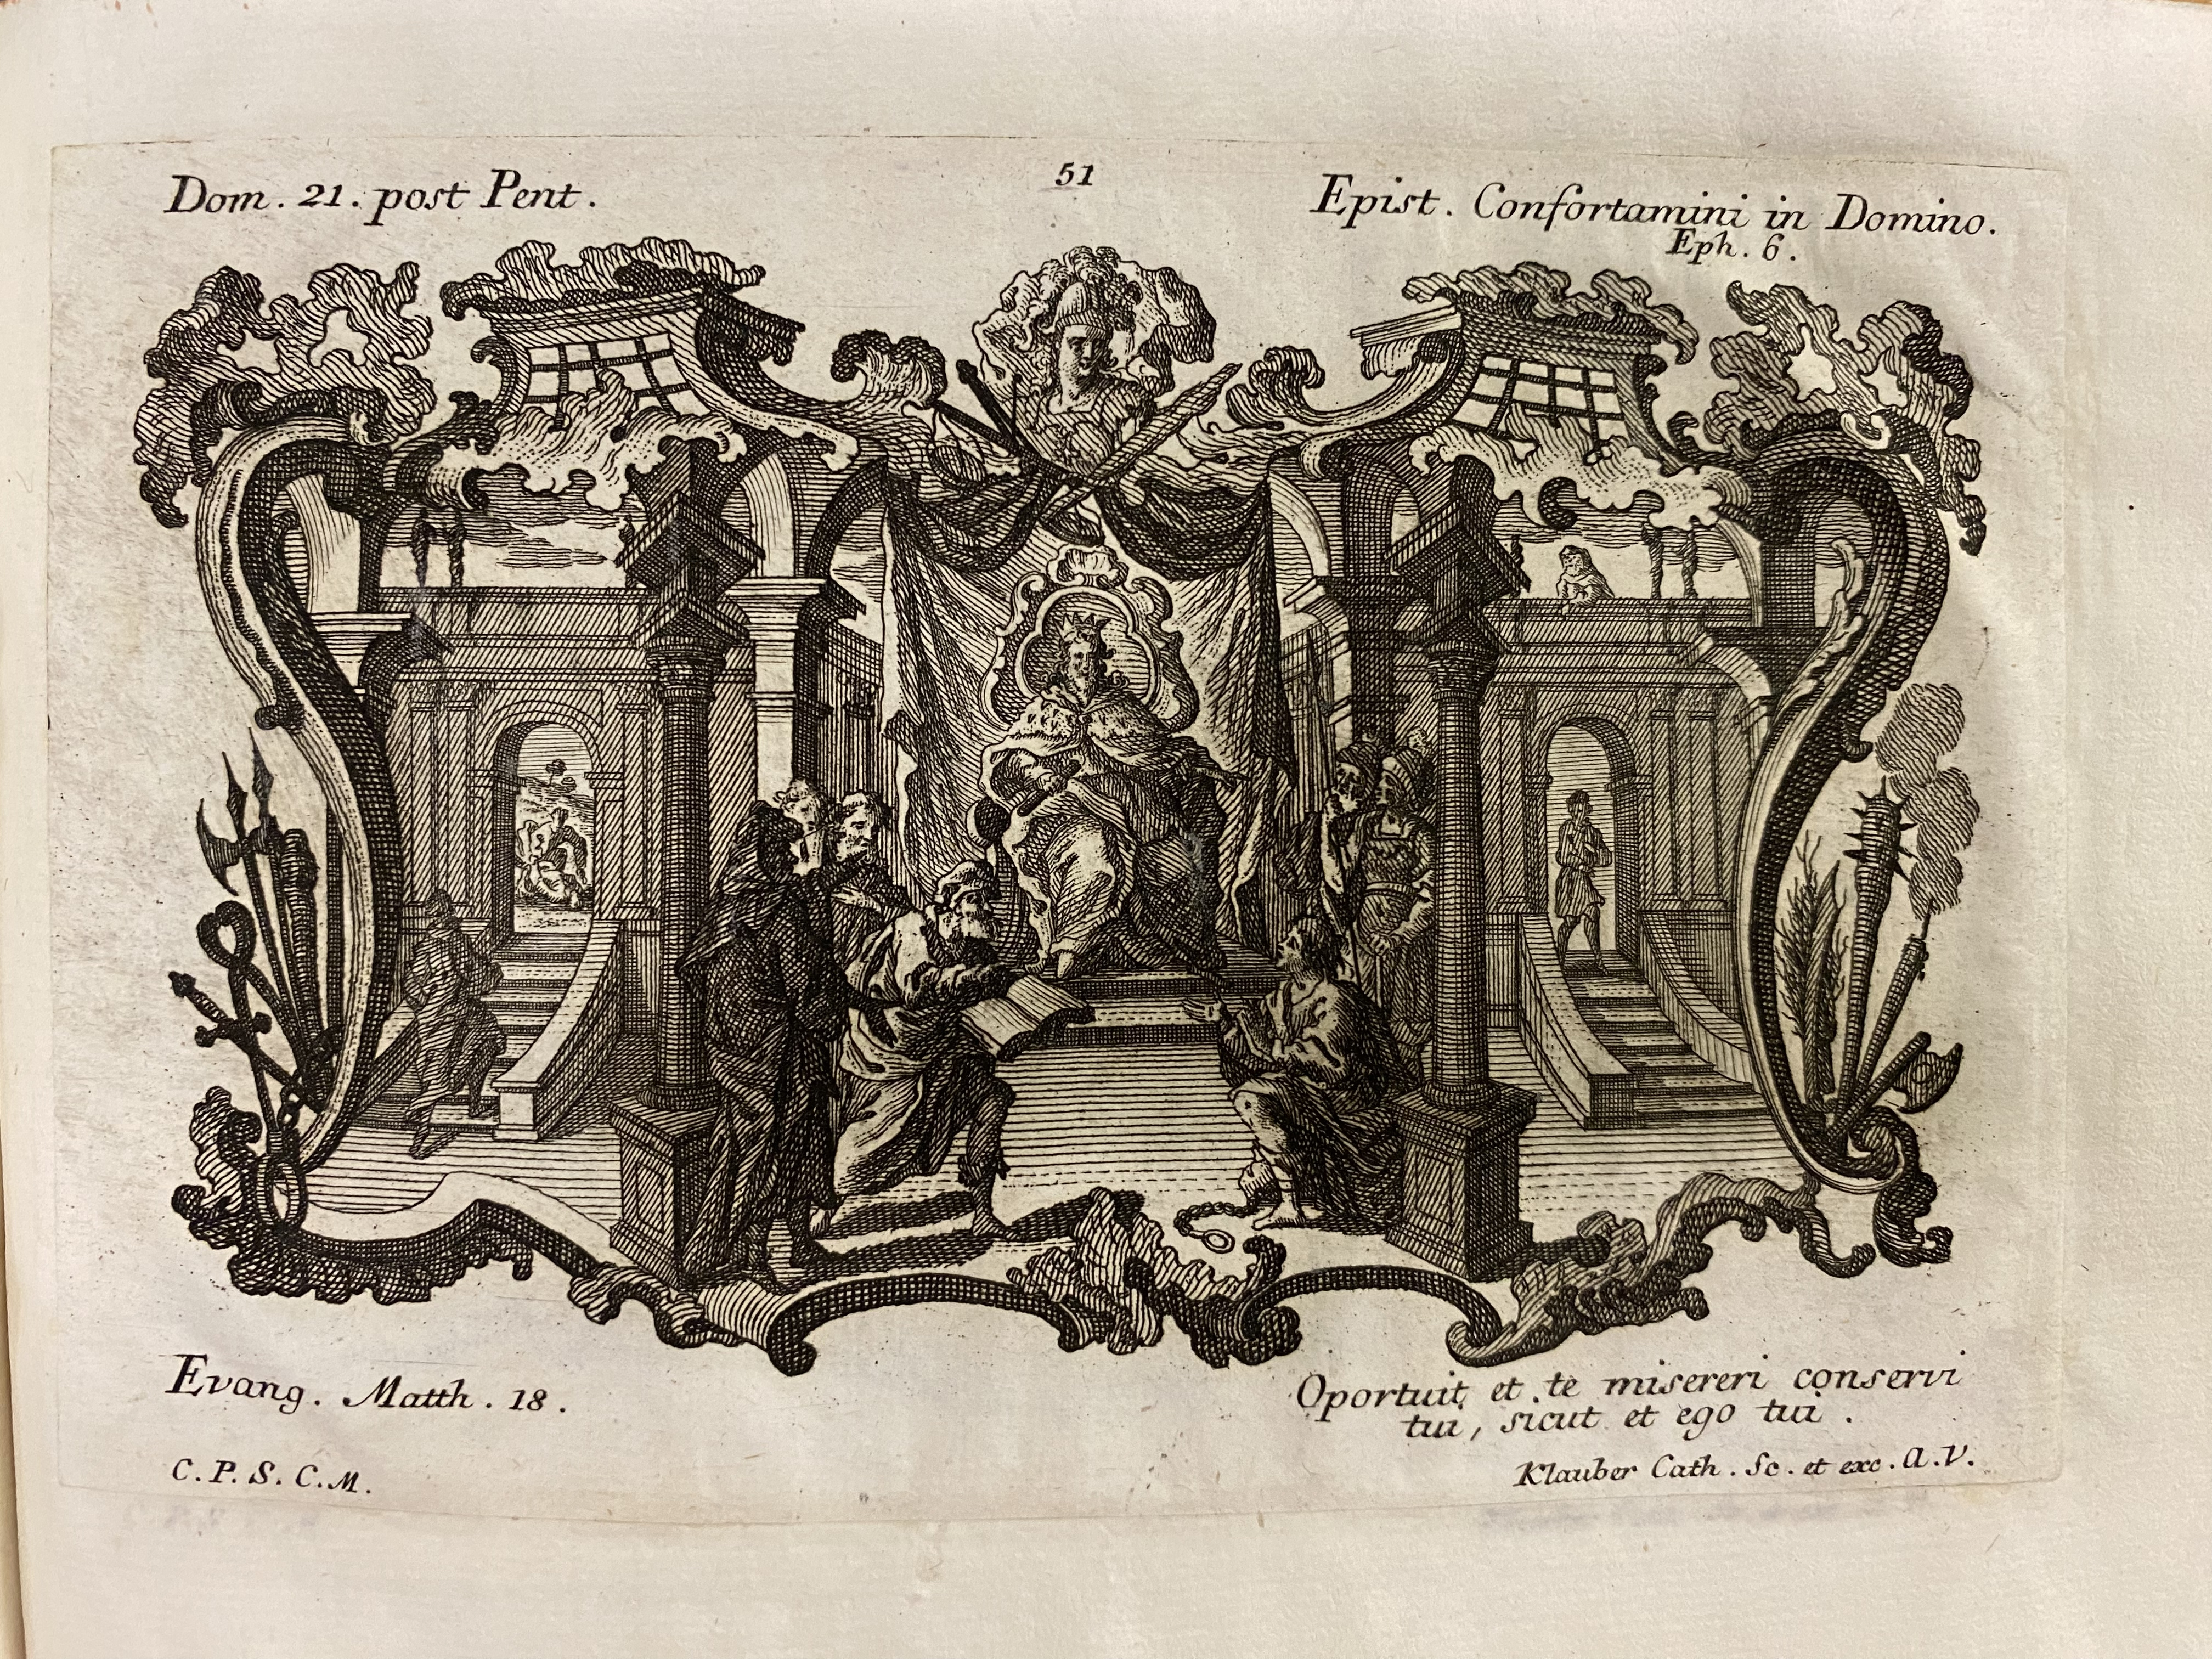 Dom. 21. post Pent.
51
Epist. Confortamini in Domino.
Eph. 6.
Evang. Matth. 18.
Oportuit et te misereri conservi
tui, sicut et ego tui.
C. P. S. C. M.
Klauber Cath. Sc. et exc. A. V.